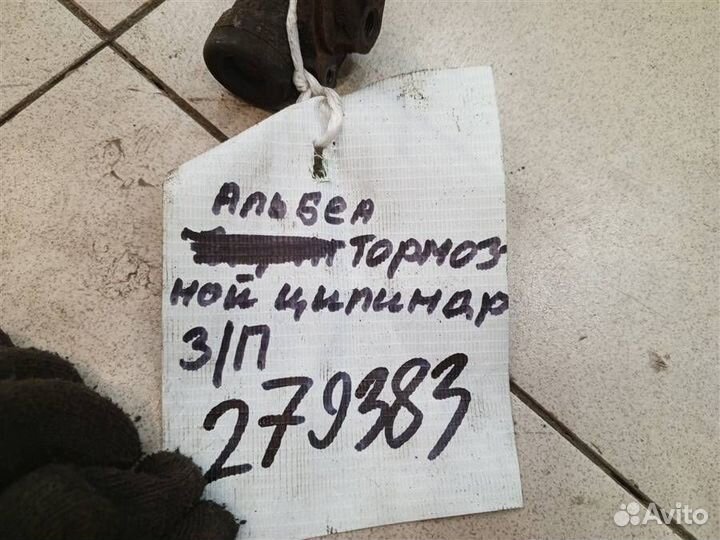 Альбеа
Тормоз
ной цилиндр
З/П
279383
Avito